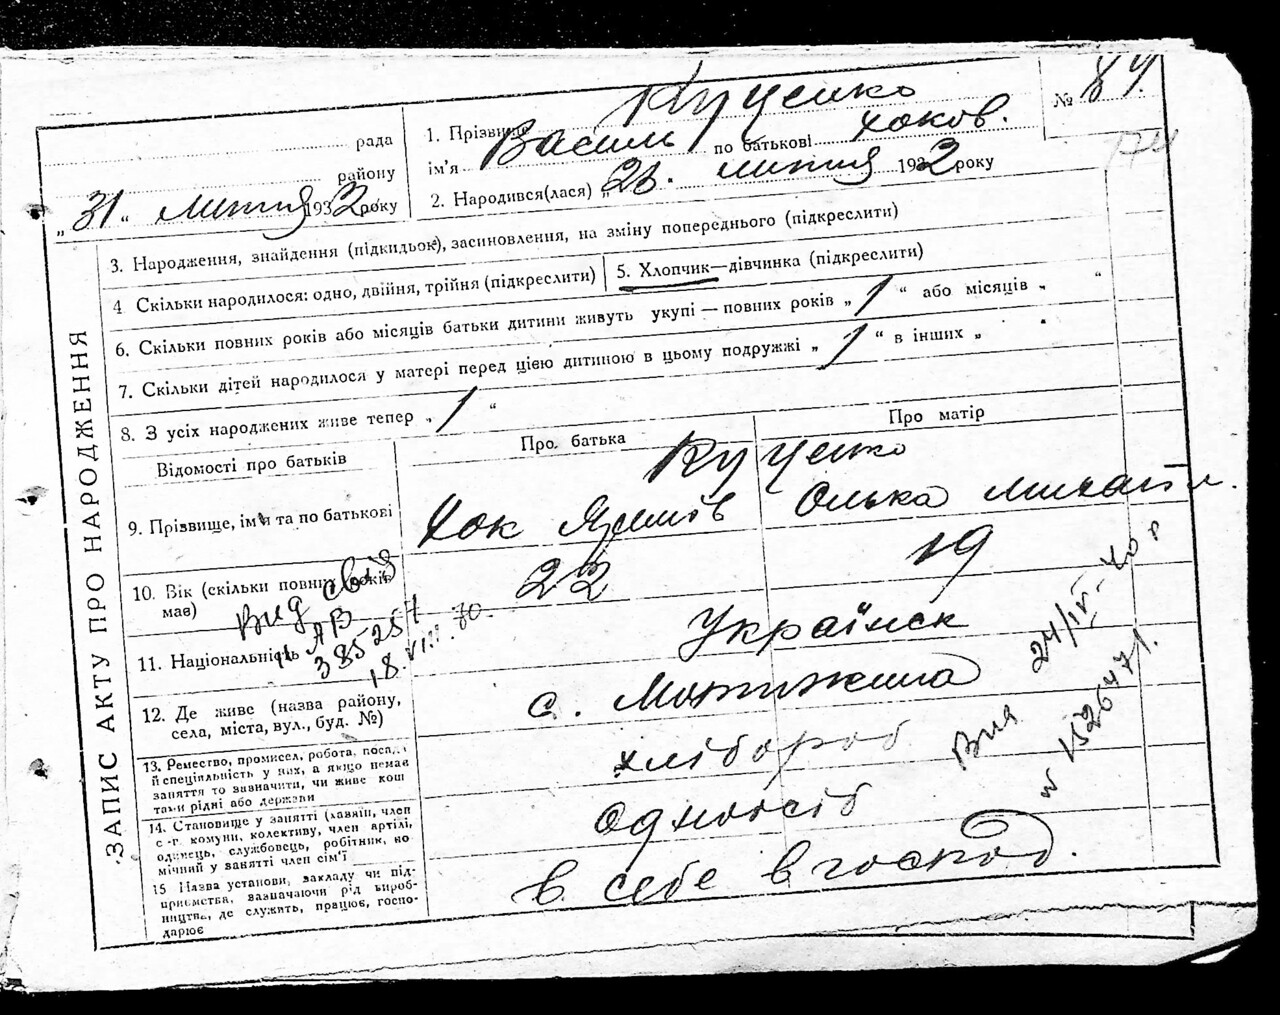 № 84.
174
рада
району
„31“ липня 1932 року
1. Прізвище Куценко
ім'я Василь по батькові Хоков.
2. Народився(лася) „23. липня 1932 року
ЗАПИС АКТУ ПРО НАРОДЖЕННЯ
3. Народження, знайдення (підкидьок), засиновлення, на зміну попереднього (підкреслити)
4 Скільки народилося: одно, двійня, трійня (підкреслити)
5. Хлопчик—дівчинка (підкреслити)
6. Скільки повних років або місяців батьки дитини живуть укупі — повних років „ 1 “ або місяців „ “
7. Скільки дітей народилося у матері перед цією дитиною в цьому подружжі „ 1 “ в інших „ “
8. З усіх народжених живе тепер „ 1 “
Відомості про батьків
Про батька
Про матір
Куценко
9. Прізвище, ім'я та по батькові
Хок
Олька Михайл.
10. Вік (скільки повних років має)
22
19
Вид свід
АВ
385257
18.VIII.80.
11. Національність
Українск
12. Де живе (назва району,
села, міста, вул., буд. №)
с. Мотижина
13. Ремество, промисел, робота, посада
й спеціяльність у них, а якщо немає
заняття то зазначити, чи живе кош
тами рідні або держави
хлібороб
14. Становище у занятті (хазяїн, член
с.-г. комуни, колективу, член артілі,
одинець, службовець, робітник, по
мічний у занятті член сім'ї
одноосіб
15 Назва установи, закладу чи під-
приємства, зазначаючи рід вироб-
ництва, де служить, працює, госпо-
дарює
в себе в господ.
24/IV-40 р
№ 1526471.